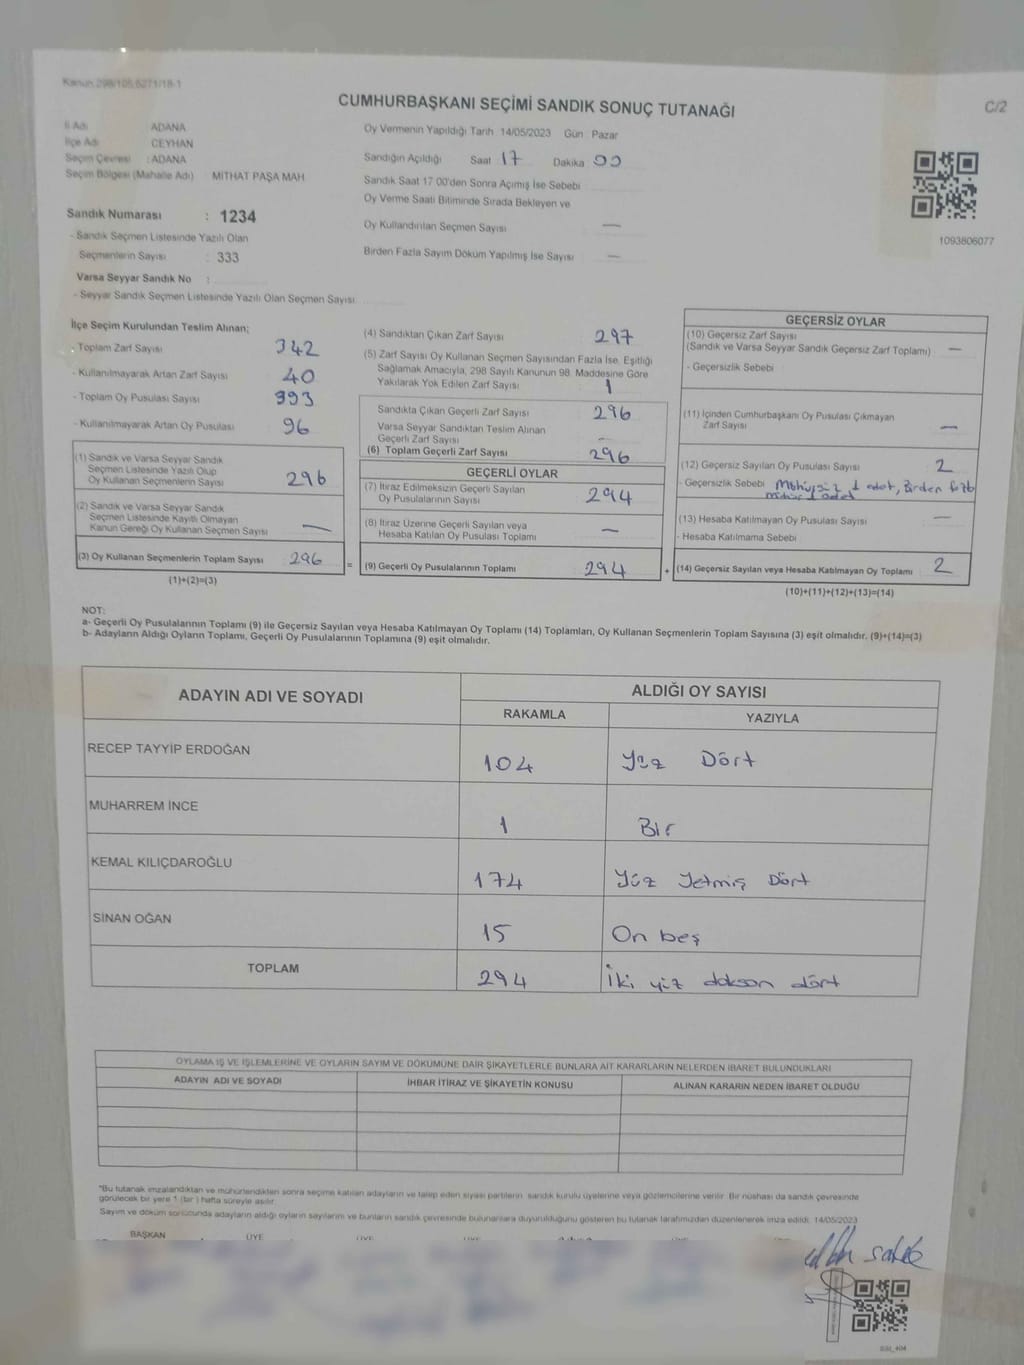 Kanun 298/105,6271/18-1
CUMHURBAŞKANI SEÇİMİ SANDIK SONUÇ TUTANAĞI
C/2
İl Adı : ADANA
İlçe Adı : CEYHAN
Seçim Çevresi : ADANA
Seçim Bölgesi (Mahalle Adı) : MİTHAT PAŞA MAH.
Sandık Numarası : 1234
- Sandık Seçmen Listesinde Yazılı Olan
Seçmenlerin Sayısı : 333
Varsa Seyyar Sandık No :
- Seyyar Sandık Seçmen Listesinde Yazılı Olan Seçmen Sayısı
Oy Vermenin Yapıldığı Tarih 14/05/2023 Gün Pazar
Sandığın Açıldığı Saat 17 Dakika 00
Sandık Saat 17.00'den Sonra Açımış İse Sebebi
Oy Verme Saati Bitiminde Sırada Bekleyen ve
Oy Kullandırılan Seçmen Sayısı —
Birden Fazla Sayım Döküm Yapılmış İse Sayısı —
1093806077
İlçe Seçim Kurulundan Teslim Alınan;
- Toplam Zarf Sayısı 342
- Kullanılmayarak Artan Zarf Sayısı 40
- Toplam Oy Pusulası Sayısı 393
- Kullanılmayarak Artan Oy Pusulası 96
(1) Sandık ve Varsa Seyyar Sandık
Seçmen Listesinde Yazılı Olup
Oy Kullanan Seçmenlerin Sayısı 296
(2) Sandık ve Varsa Seyyar Sandık
Seçmen Listesinde Kayıtlı Olmayan
Kanun Gereği Oy Kullanan Seçmen Sayısı —
(3) Oy Kullanan Seçmenlerin Toplam Sayısı 296
(1)+(2)=(3)
(4) Sandıktan Çıkan Zarf Sayısı 297
(5) Zarf Sayısı Oy Kullanan Seçmen Sayısından Fazla İse, Eşitliği
Sağlamak Amacıyla, 298 Sayılı Kanunun 98. Maddesine Göre
Yakılarak Yok Edilen Zarf Sayısı 1
Sandıkta Çıkan Geçerli Zarf Sayısı 296
Varsa Seyyar Sandıktan Teslim Alınan
Geçerli Zarf Sayısı —
(6) Toplam Geçerli Zarf Sayısı 296
GEÇERLİ OYLAR
(7) İtiraz Edilmeksizin Geçerli Sayılan
Oy Pusulalarının Sayısı 294
(8) İtiraz Üzerine Geçerli Sayılan veya
Hesaba Katılan Oy Pusulası Toplamı —
= (9) Geçerli Oy Pusulalarının Toplamı 294
GEÇERSİZ OYLAR
(10) Geçersiz Zarf Sayısı
(Sandık ve Varsa Seyyar Sandık Geçersiz Zarf Toplamı) —
- Geçersizlik Sebebi
(11) İçinden Cumhurbaşkanı Oy Pusulası Çıkmayan
Zarf Sayısı —
(12) Geçersiz Sayılan Oy Pusulası Sayısı 2
- Geçersizlik Sebebi Mühürsüz 1 adet, Birden fazla
mühür 1 adet
(13) Hesaba Katılmayan Oy Pusulası Sayısı —
- Hesaba Katılmama Sebebi
+ (14) Geçersiz Sayılan veya Hesaba Katılmayan Oy Toplamı 2
(10)+(11)+(12)+(13)=(14)
NOT:
a- Geçerli Oy Pusulalarının Toplamı (9) ile Geçersiz Sayılan veya Hesaba Katılmayan Oy Toplamı (14) Toplamları, Oy Kullanan Seçmenlerin Toplam Sayısına (3) eşit olmalıdır. (9)+(14)=(3)
b- Adayların Aldığı Oyların Toplamı, Geçerli Oy Pusulalarının Toplamına (9) eşit olmalıdır.
ADAYIN ADI VE SOYADI ALDIĞI OY SAYISI
RAKAMLA YAZIYLA
RECEP TAYYİP ERDOĞAN 104 Yüz Dört
MUHARREM İNCE 1 Bir
KEMAL KILIÇDAROĞLU 174 Yüz Yetmiş Dört
SİNAN OĞAN 15 On beş
TOPLAM 294 İki yüz doksan dört
OYLAMA İŞ VE İŞLEMLERİNE VE OYLARIN SAYIM VE DÖKÜMÜNE DAİR ŞİKAYETLERLE BUNLARA AİT KARARLARIN NELERDEN İBARET BULUNDUKLARI
ADAYIN ADI VE SOYADI İHBAR İTİRAZ VE ŞİKAYETİN KONUSU ALINAN KARARIN NEDEN İBARET OLDUĞU
*Bu tutanak imzalandıktan ve mühürlendikten sonra seçime katılan adayların ve talep eden siyasi partilerin sandık kurulu üyelerine veya gözlemcilerine verilir. Bir nüshası da sandık çevresinde
görülecek bir yere 1 (bir) hafta süreyle asılır.
Sayım ve döküm sonucunda adayların aldığı oyların sayılarını ve bunların sandık çevresinde bulunanlara duyurulduğunu gösteren bu tutanak tarafımızdan düzenlenerek imza edildi. 14/05/2023
BAŞKAN ÜYE